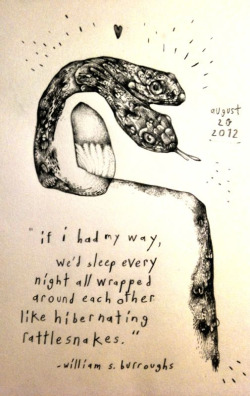 august
20
2012
"if i had my way,
we'd sleep every
night all wrapped
around each other
like hibernating
rattlesnakes."
-william s. burroughs